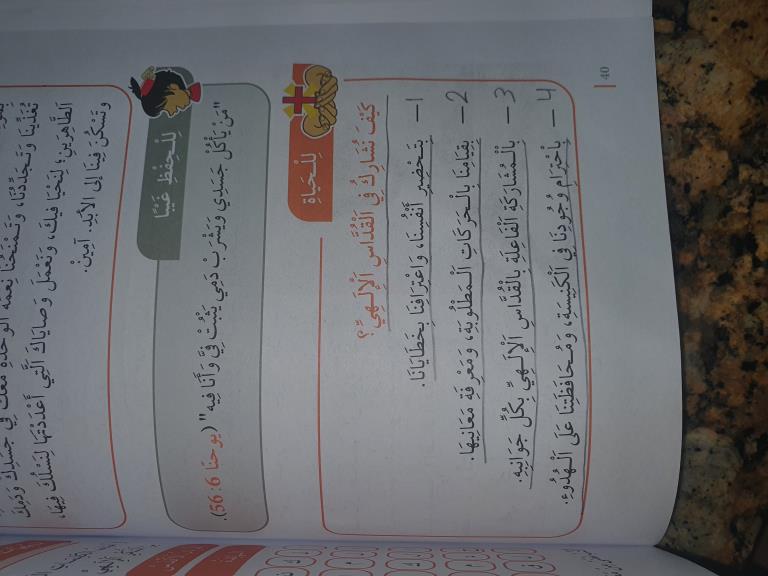 تُغَذِّينَا وَتُجَدِّدُنَا، وَتَمْنَحُنَا نِعْمَةَ الْوَحْدَةِ مَعَكَ فِي جَسَدِكَ وَدَمِكَ
الطَّاهِرَيْنِ؛ لِنَحْيَا فِيكَ، وَنَعْمَلَ وَصَايَاكَ الَّتِي أَعْدَدْتَهَا لِنَسْلُكَ فِيهَا،
وَتَسْكُنَ فِينَا إِلَى الْأَبَدِ. آمِينْ.
لِلْحِفْظِ غَيْبًا
"مَنْ يَأْكُلْ جَسَدِي وَيَشْرَبْ دَمِي يَثْبُتْ فِيَّ وَأَنَا فِيهِ" (يوحنّا 6:56).
لِلْحَيَاةِ
كَيْفَ نُشَارِكُ فِي الْقُدَّاسِ الْإِلَهِيِّ؟
1 – بِتَحْضِيرِ أَنْفُسِنَا، وَاعْتِرَافِنَا بِخَطَايَانَا.
2 – بِقِيَامِنَا بِالْحَرَكَاتِ الْمَطْلُوبَةِ، وَمَعْرِفَةِ مَعَانِيهَا.
3 – بِالْمُشَارَكَةِ الْفَاعِلَةِ بِالْقُدَّاسِ الْإِلَهِيِّ بِكُلِّ جَوَانِبِهِ.
4 – بِاحْتِرَامِ وُجُودِنَا فِي الْكَنِيسَةِ، وَمُحَافَظَتِنَا عَلَى الْهُدُوءِ.
40